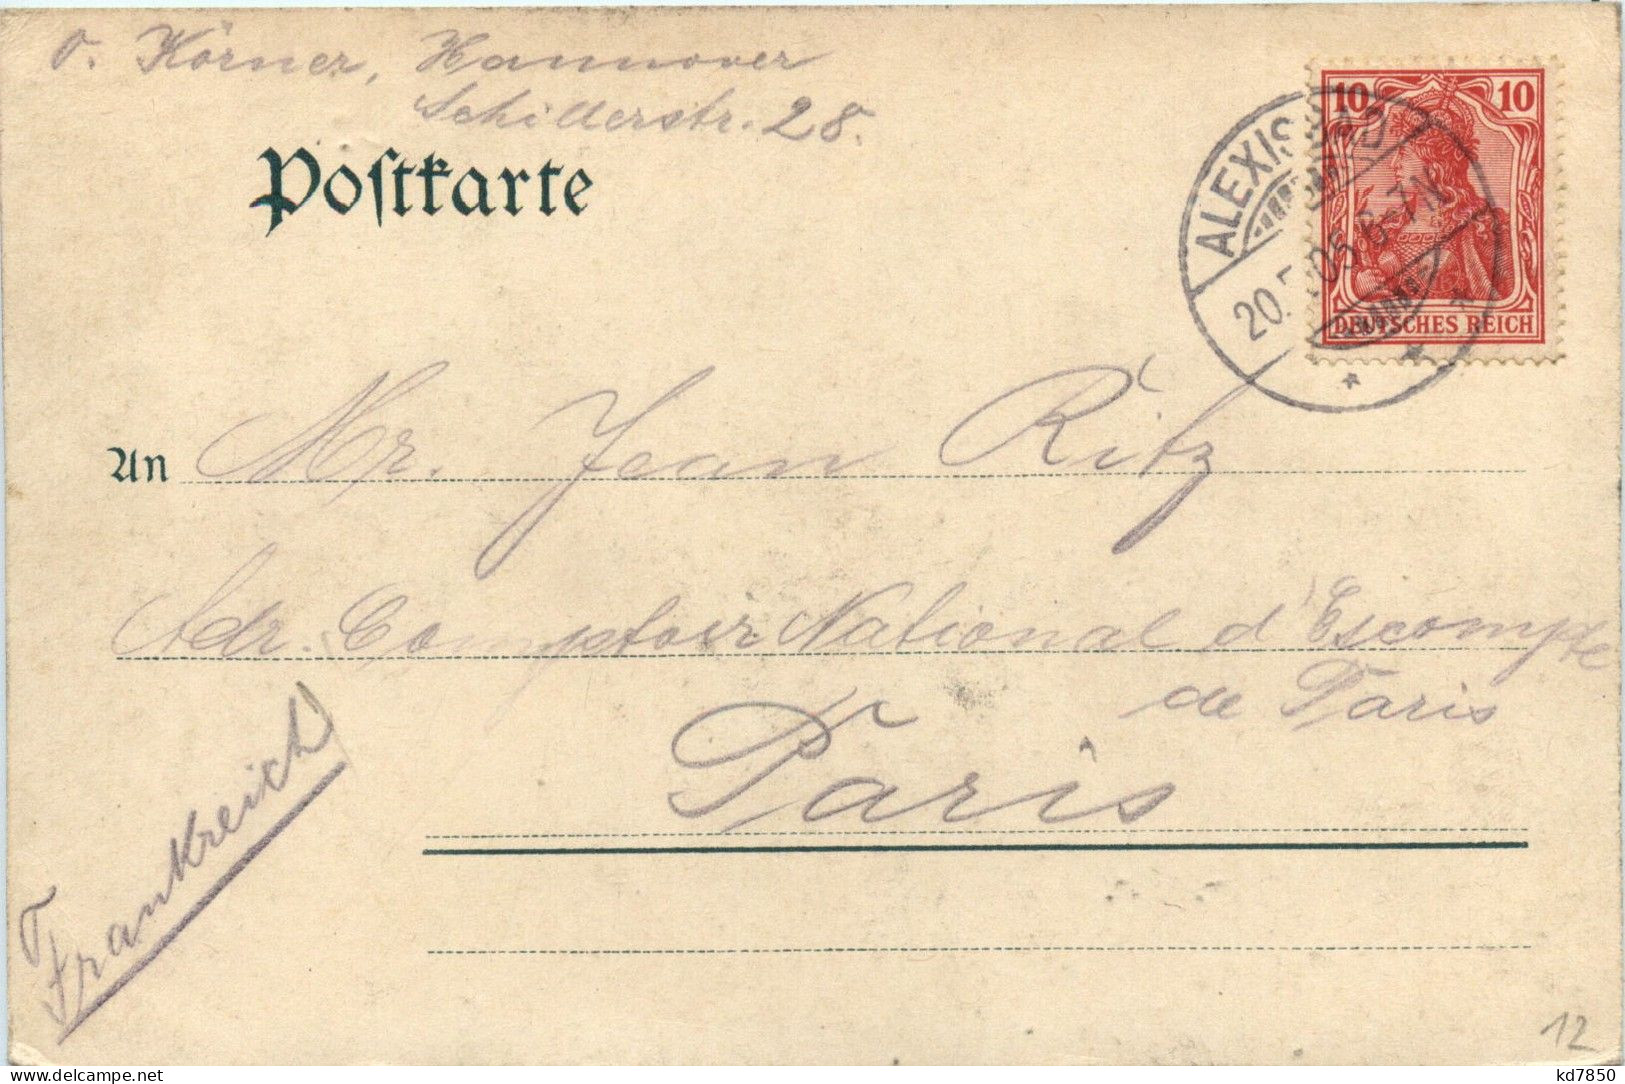 v. Körner, Hannover
Schillerstr. 28.
Postkarte
10 10
DEUTSCHES REICH
ALEXISBAD
20. 05 6-7N
An Mr. Jean Ritz
Adr. Comptoir National d'Escompte
de Paris
Paris
Frankreich
12
www.delcampe.net
kd7850